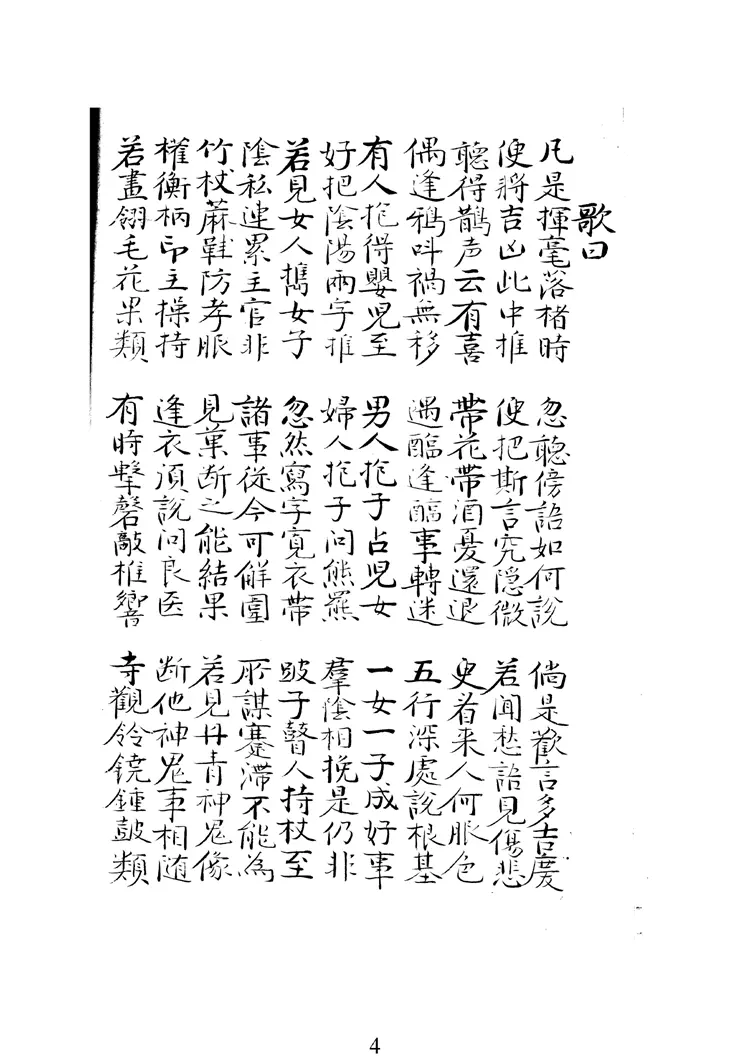 歌曰
凡是揮毫落楮時 忽聽傍語如何說 倘是歡言多吉慶
便將吉凶此中推 便把斯言究隐微 若聞愁語見傷悲
聽得鵲声云有喜 帶花帶酒憂還退 史看来人何服色
偶逢鴉叫禍無移 遇醢逢醢事轉迷 五行深處說根基
有人抱得嬰児至 男人抱子占児女 一女一子成好事
好把陰陽兩字推 婦人抱子问熊羆 羣陰相挽是仍非
若見女人攜女子 忽然寫字寬衣帶 跛子瞽人持杖至
陰私連累主官非 諸事從今可觧圍 所謀蹇滯不能為
竹杖蔴鞋防孝服 見菓断之能結果 若見丹青神鬼像
權衡柄印主操持 逢衣須說问良医 断他神鬼事相随
若畫翎毛花果類 有時擊磬敲椎響 寺觀鈴鐃鍾鼓類
4